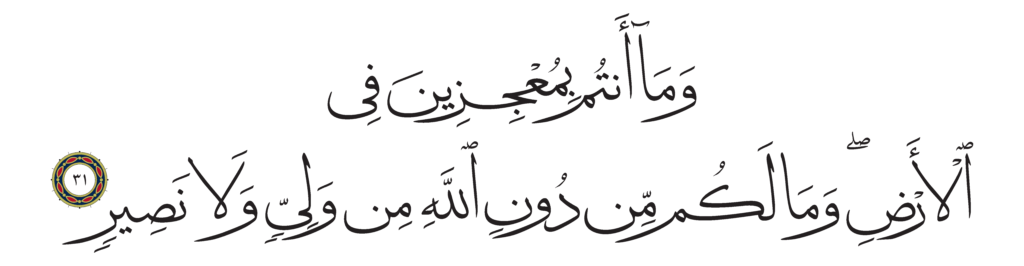 وَمَآ أَنتُم بِمُعْجِزِينَ فِى
ٱلْأَرْضِ ۖ وَمَا لَكُم مِّن دُونِ ٱللَّهِ مِن وَلِىٍّ وَلَا نَصِيرٍ ٣١